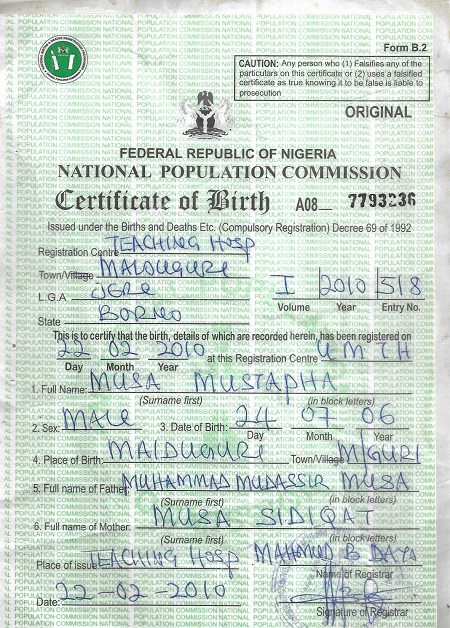 Form B.2
CAUTION: Any person who (1) Falsifies any of the
particulars on this certificate or (2) uses a falsified
certificate as true knowing it to be false is liable to
prosecution
ORIGINAL
FEDERAL REPUBLIC OF NIGERIA
NATIONAL POPULATION COMMISSION
Certificate of Birth A08 7793236
Issued under the Births and Deaths Etc. (Compulsory Registration) Decree 69 of 1992
Registration Centre TEACHING HOSP
Town/Village MAIDUGURI
L.G.A JERE I 2010 518
Volume Year Entry No.
State BORNO
This is to certify that the birth, details of which are recorded herein, has been registered on
22 02 2010 at this Registration Centre UMTH
Day Month Year
1. Full Name: MUSA MUSTAPHA
(Surname first) (in block letters)
2. Sex: MALE 3. Date of Birth: 24 07 06
Day Month Year
4. Place of Birth: MAIDUGURI Town/Village M/GURI
5. Full name of Father MUHAMMAD MUDASSIR MUSA
(Surname first) (in block letters)
6. Full name of Mother: MUSA SIDIQAT
(Surname first) (in block letters)
Place of issue TEACHING HOSP MAHOMUD B DAYA
Name of Registrar
Date: 22-02-2010
Signature of Registrar